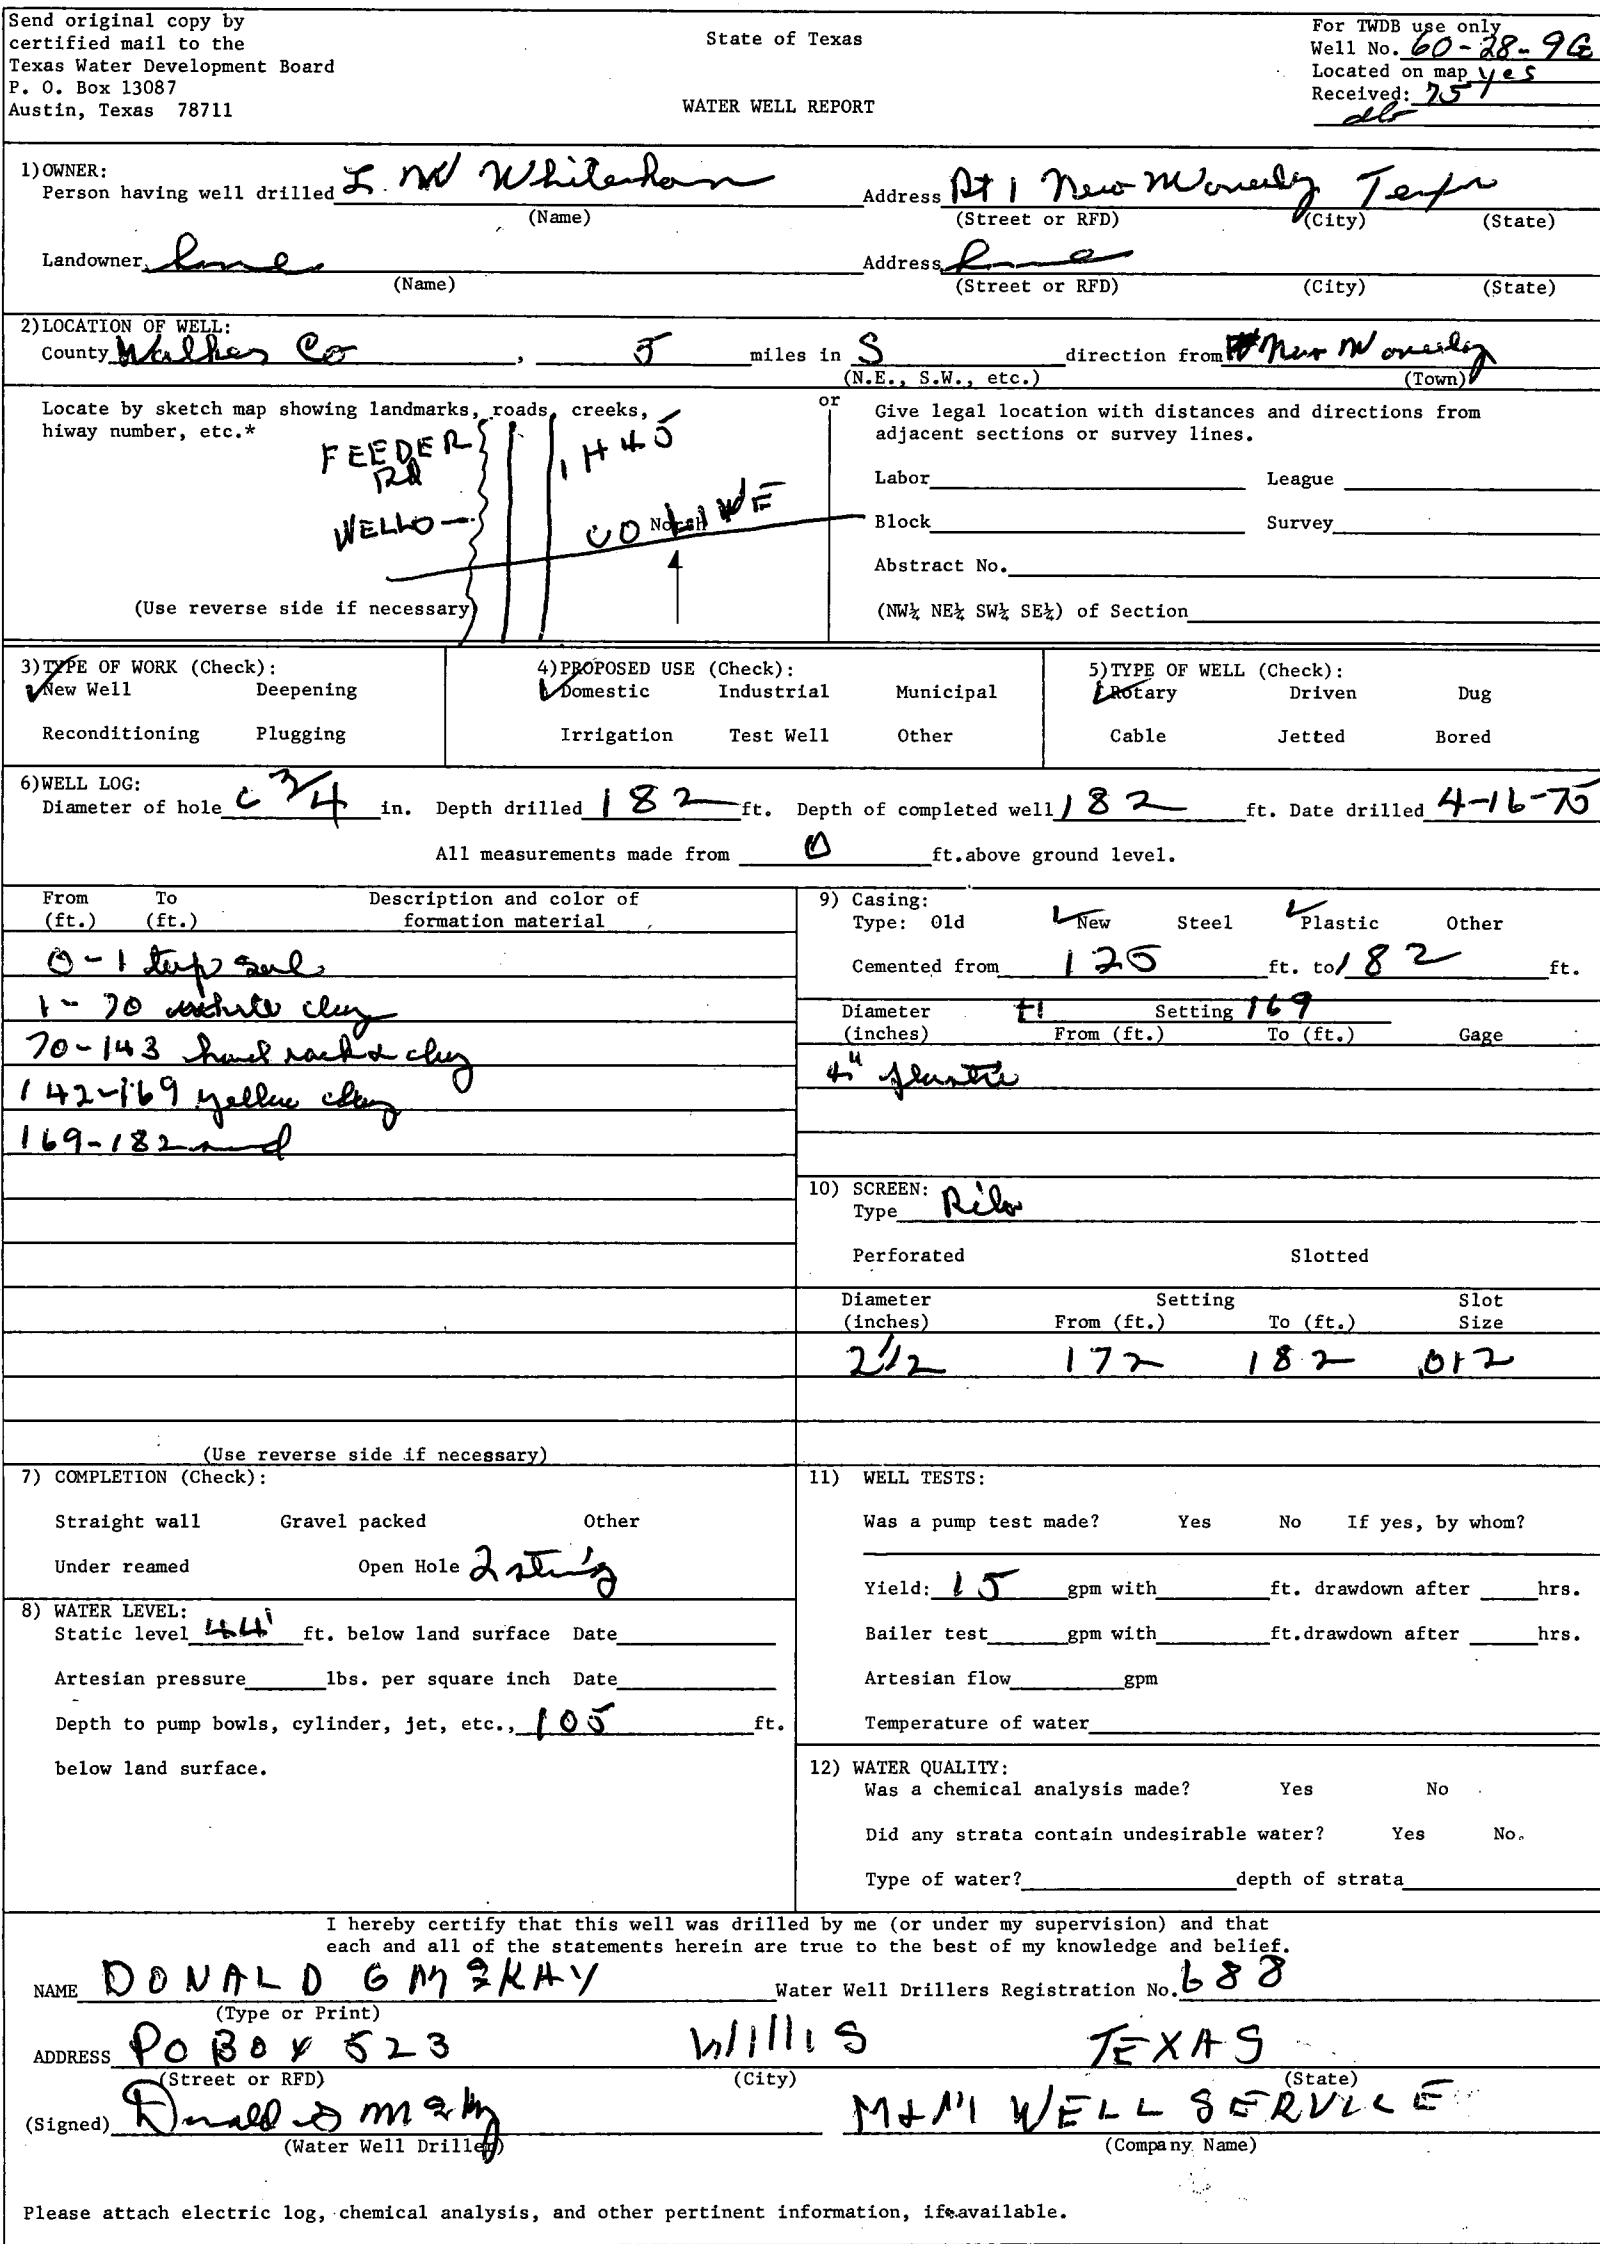 Send original copy by
certified mail to the
Texas Water Development Board
P. O. Box 13087
Austin, Texas 78711
State of Texas
WATER WELL REPORT
For TWDB use only
Well No. 60-28-9G
Located on map yes
Received: 75
1)OWNER:
Person having well drilled L. W Address Rt 1 New Waverly Texas
(Name) (Street or RFD) (City) (State)
Landowner Same Address Same
(Name) (Street or RFD) (City) (State)
2)LOCATION OF WELL:
County Walker Co, 5 miles in S direction from New Waverly
(N.E., S.W., etc.) (Town)
Locate by sketch map showing landmarks, roads, creeks,
hiway number, etc.*
FEEDER
Rd
IH45
WELLO
CO LINE
North
(Use reverse side if necessary)
or
Give legal location with distances and directions from
adjacent sections or survey lines.
Labor League
Block Survey
Abstract No.
(NW¼ NE¼ SW¼ SE¼) of Section
3)TYPE OF WORK (Check):
✓New Well Deepening
Reconditioning Plugging
4)PROPOSED USE (Check):
✓Domestic Industrial Municipal
Irrigation Test Well Other
5)TYPE OF WELL (Check):
✓Rotary Driven Dug
Cable Jetted Bored
6)WELL LOG:
Diameter of hole 6 3/4 in. Depth drilled 182 ft. Depth of completed well 182 ft. Date drilled 4-16-75
All measurements made from 0 ft.above ground level.
From To Description and color of
(ft.) (ft.) formation material
0-1 top soil
1-70 white clay
70-143 hard rock & clay
142-169 yellow clay
169-182 sand
(Use reverse side if necessary)
9) Casing:
Type: Old ✓New Steel ✓Plastic Other
Cemented from ft. to 182 ft.
Diameter Setting 169
(inches) From (ft.) To (ft.) Gage
4" plastic
10) SCREEN:
Type
Perforated Slotted
Diameter Setting Slot
(inches) From (ft.) To (ft.) Size
2 1/2 172 182 .012
7) COMPLETION (Check):
Straight wall Gravel packed Other
Under reamed Open Hole 2 string
8) WATER LEVEL:
Static level 44' ft. below land surface Date
Artesian pressure lbs. per square inch Date
Depth to pump bowls, cylinder, jet, etc., 105 ft.
below land surface.
11) WELL TESTS:
Was a pump test made? Yes No If yes, by whom?
Yield: 15 gpm with ft. drawdown after hrs.
Bailer test gpm with ft.drawdown after hrs.
Artesian flow gpm
Temperature of water
12) WATER QUALITY:
Was a chemical analysis made? Yes No
Did any strata contain undesirable water? Yes No.
Type of water? depth of strata
I hereby certify that this well was drilled by me (or under my supervision) and that
each and all of the statements herein are true to the best of my knowledge and belief.
NAME DONALD G McKAY Water Well Drillers Registration No. 688
(Type or Print)
ADDRESS PO BOX 523 WILLIS TEXAS
(Street or RFD) (City) (State)
(Signed) Donald G McKay M+M WELL SERVICE
(Water Well Driller) (Company Name)
Please attach electric log, chemical analysis, and other pertinent information, if available.